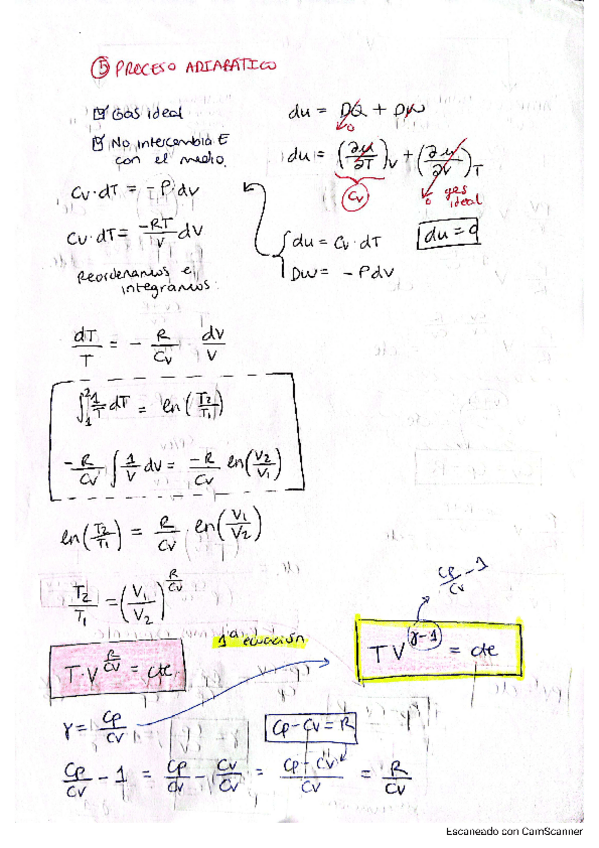 ⑤ PROCESO ADIABÁTICO
☑ Gas ideal
☑ No intercambia E
con el medio.
du = DQ + Dw
→ 0
du = (∂u/∂T)v + (∂u/∂v)T
Cv
→ 0 gas
ideal
Cv·dT = -P·dv
Cv·dT = -RT/V dv
du = Cv·dT
Dw = -Pdv
Reordenamos e
integramos:
dT/T = - R/Cv dv/V
∫₁² 1/T dT = ln(T2/T1)
-R/Cv ∫ 1/V dv = -R/Cv ln(V2/V1)
ln(T2/T1) = R/Cv · ln(V1/V2)
T2/T1 = (V1/V2)^(R/Cv)
Cp/Cv - 1
1ª ecuación
T·V^(R/Cv) = cte.
TV^(γ-1) = cte
γ = Cp/Cv
Cp - Cv = R
Cp/Cv - 1 = Cp/Cv - Cv/Cv = Cp - Cv/Cv = R/Cv
Escaneado con CamScanner